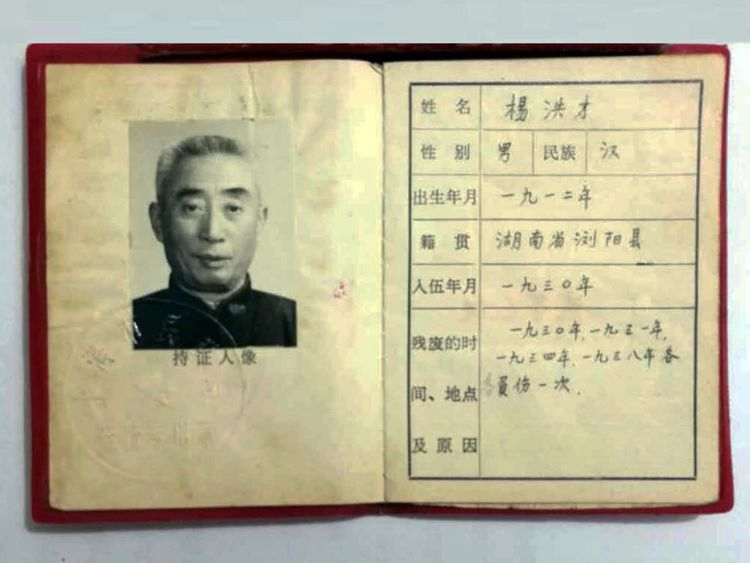 持证人像
姓名 楊洪才
性别 男 民族 汉
出生年月 一九一二年
籍贯 湖南省浏阳县
入伍年月 一九三〇年
残废的时间、地点及原因
一九三〇年、一九三一年,
一九三四年、一九三八年各
員伤一次.